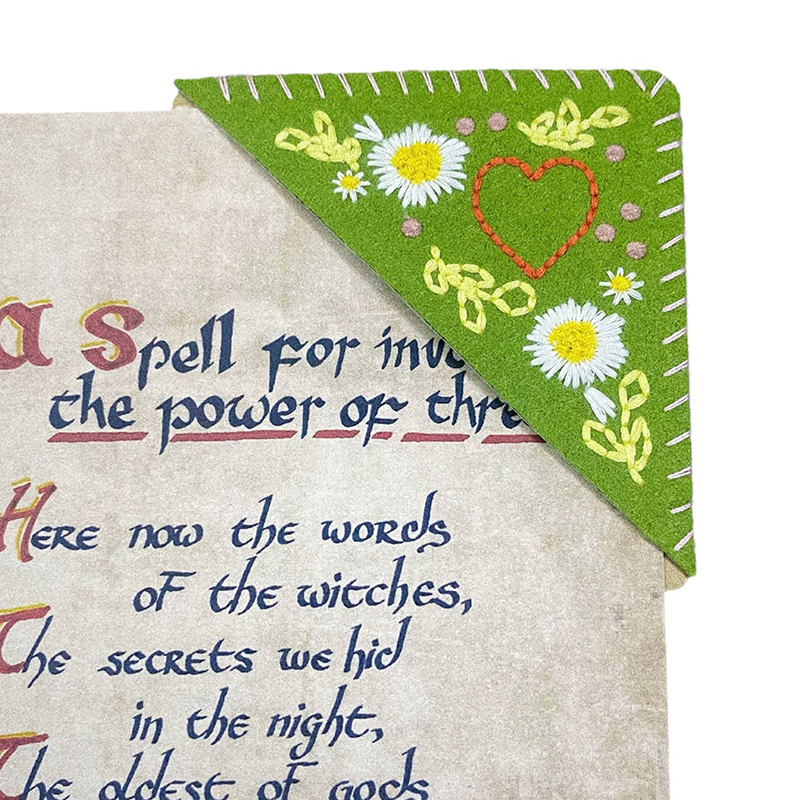 a Spell for inv
the power of thre
Here now the words
of the witches,
The secrets we hid
in the night,
The oldest of gods